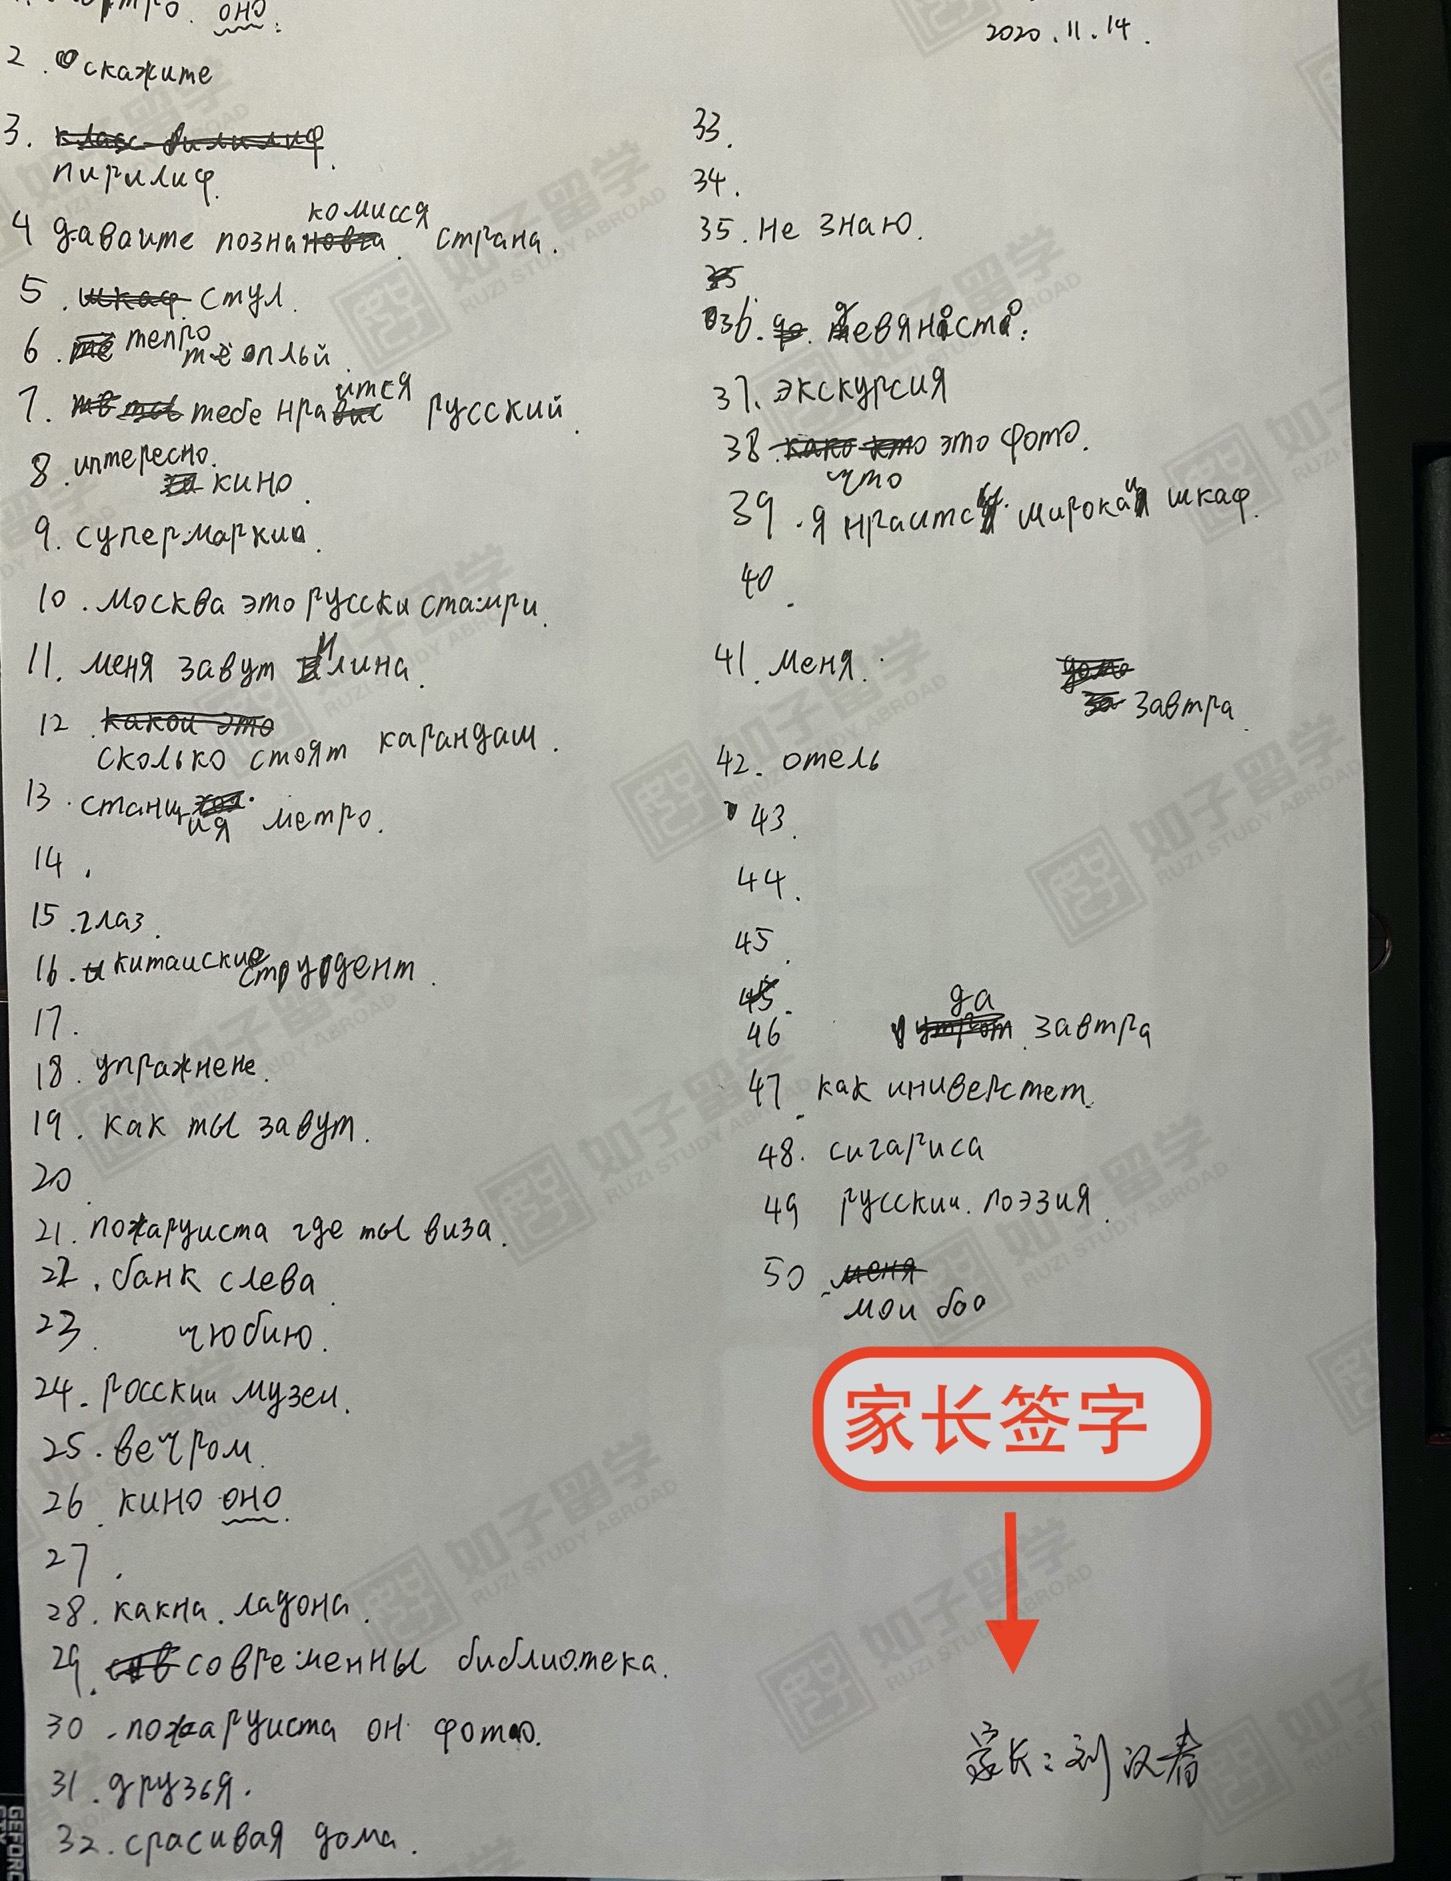 оно.
2020.11.14.
2. скажите
3.
пирилиф.
4 даваите позна комисся страна.
5. стул.
6. тепро тёплый
7. тебе нраится русский.
8. интересно.
кино.
9. супермаркио.
10. москва это русски стампри.
11. меня завут Илина.
12.
сколько стоят карандаш.
13. станция метро.
14.
15. глаз.
16. китаиские струдент.
17.
18. упражнене.
19. как ты завут.
20
21. пожаруиста где ты виза.
22. банк слева.
23. чюбию.
24. росскии музеи.
25. вечром.
26. кино оно.
27.
28. какна. ладона.
29. современны библиотека.
30 - пожаруиста он фото.
31. друзья.
32. срасивая дома.
33.
34.
35. не знаю.
36. девяноста.
37. экскурсия
38. что это фото.
39. я нраится широкаи шкаф.
40.
41. меня.
завтра.
42. отель
43.
44.
45.
46 да завтра
47. как иниверстет.
48. сигариса
49 русскии. поэзия.
50.
мои боо
家长签字
家长：刘汉春
如子留学
RUZI STUDY ABROAD
GEFORC